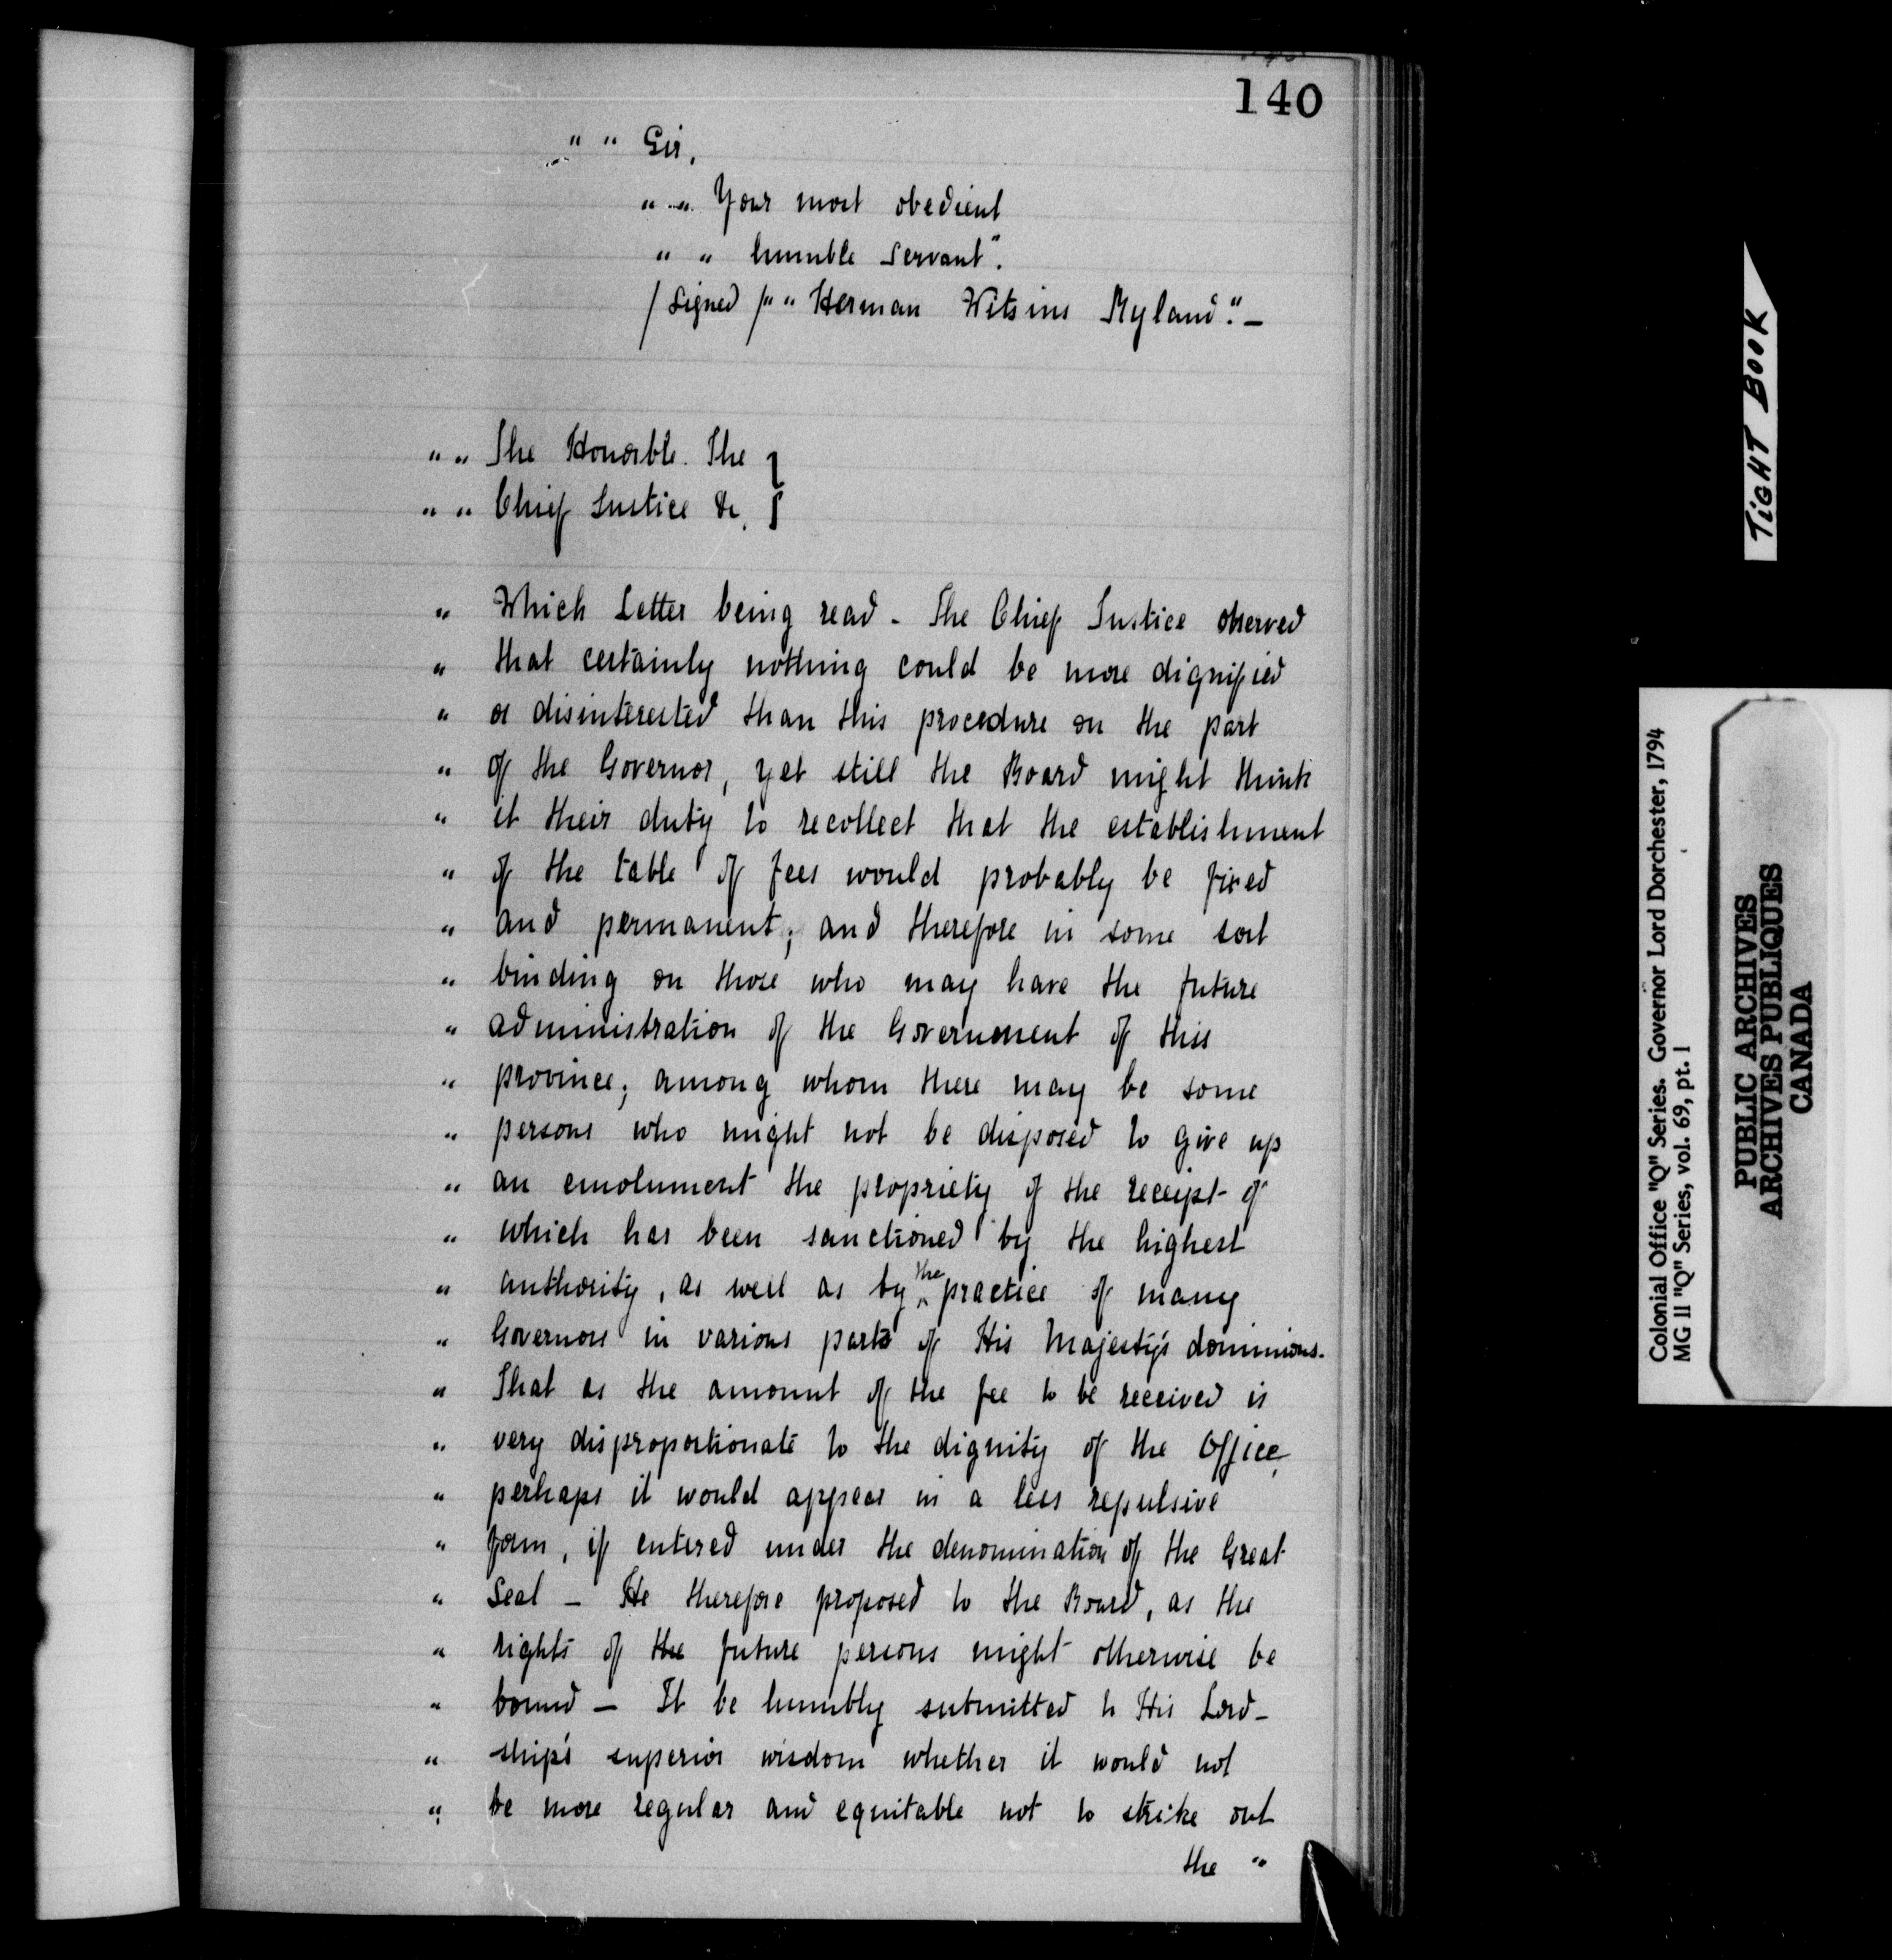 140
" " Sir,
" " Your most obedient
" " humble servant".
/ signed / " " Herman Witsius Ryland". –
" " The Honorble. The }
" " Chief Justice &c. }
" Which Letter being read – The Chief Justice observed
" that certainly nothing could be more dignified
" or disinterested than this procedure on the part
" of the Governor, yet still the Board might think
" it their duty to recollect that the establishment
" of the table of fees would probably be fixed
" and permanent; and therefore in some sort
" binding on those who may have the future
" administration of the Government of this
" province; among whom there may be some
" persons who might not be disposed to give up
" an emolument the propriety of the receipt of
" which has been sanctioned by the highest
" authority, as well as by ^the practice of many
" Governors in various parts of His Majesty's dominions.
" That as the amount of the fee to be received is
" very disproportionate to the dignity of the Office,
" perhaps it would appear in a less repulsive
" form, if entered under the denomination of the Great
" Seal – He therefore proposed to the Board, as the
" rights of the future persons might otherwise be
" bound – It be humbly submitted to His Lord-
" ship's superior wisdom whether it would not
" be more regular and equitable not to strike out
the "
TIGHT BOOK
Colonial Office "Q" Series. Governor Lord Dorchester, 1794
MG 11 "Q" Series, vol. 69, pt. 1
PUBLIC ARCHIVES
ARCHIVES PUBLIQUES
CANADA